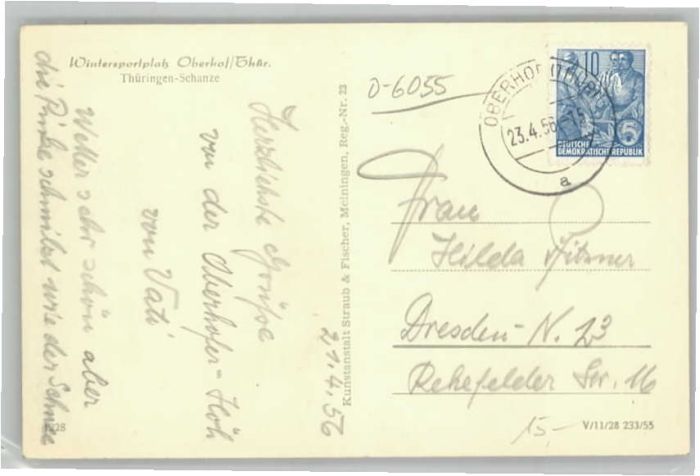 Wintersportplatz Oberhof/Thür.
Thüringen-Schanze
21.4.56
Herzlichste Grüße
von der Oberhofer-Höh
von Vati
Wetter sehr schön aber
die Pinke schmilzt wie der Schnee
1228
Kunstanstalt Straub & Fischer, Meiningen, Reg.-Nr. 23
0-6055
OBERHOF (THÜR)
23.4.56
a
10
DEUTSCHE
DEMOKRATISCHE REPUBLIK
Frau
Hilda
Dresden-N. 23
Rehefelder Str. 16
15,-
V/11/28 233/55